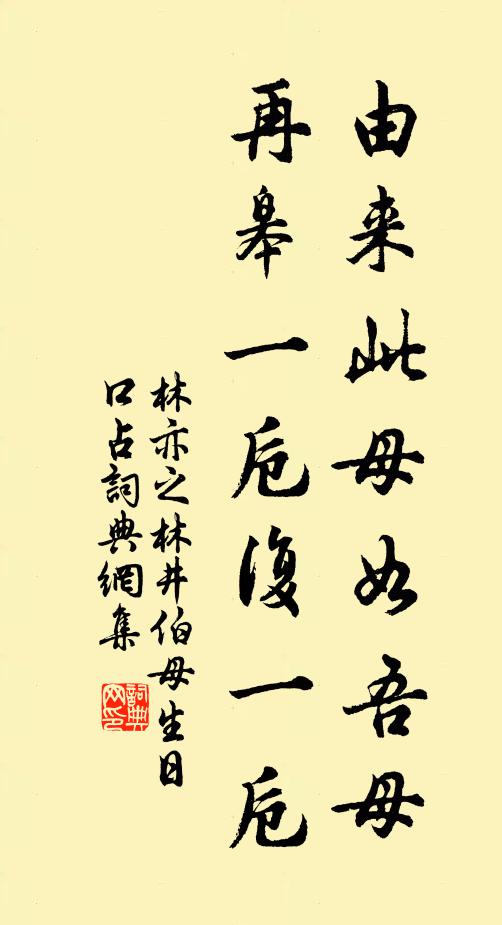 由来此母如吾母
再皋一卮復一卮
林亦之林井伯母生日
口占詞典網集
詞典网印